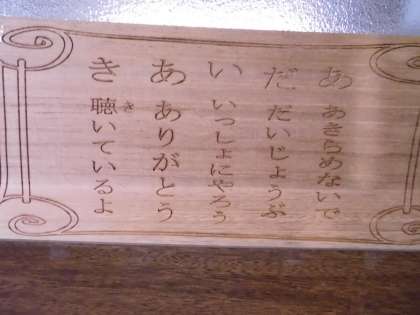 あ あきらめないで
だ だいじょうぶ
い いっしょにやろう
あ ありがとう
き 聴いているよ
き